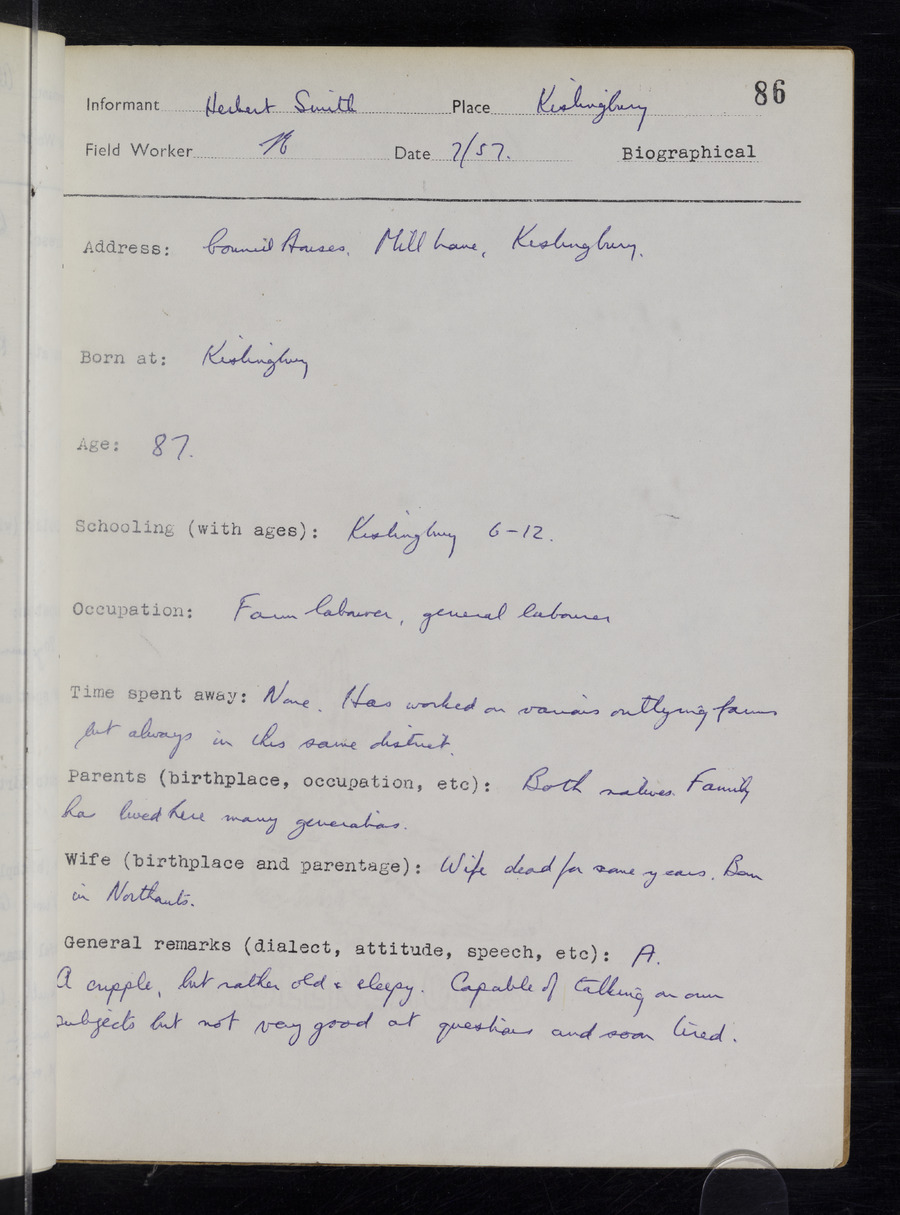 86
Informant Herbert Smith Place Kislingbury
Field Worker Date 7/57. Biographical
Address: Council Houses, Mill Lane, Kislingbury.
Born at: Kislingbury
Age: 87.
Schooling (with ages): Kislingbury 6-12.
Occupation: Farm labourer, general labourer
Time spent away: None. Has worked on various outlying farms
but always in this same district.
Parents (birthplace, occupation, etc): Both natives. Family
has lived here many generations.
Wife (birthplace and parentage): Wife dead for some years. Born
in Northants.
General remarks (dialect, attitude, speech, etc): A.
A cripple, but rather old & sleepy. Capable of talking on own
subjects but not very good at questions and soon tired.